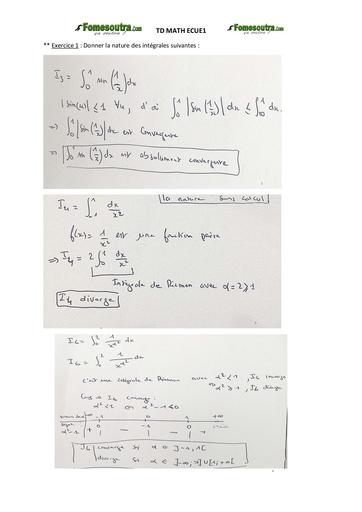 Fomesoutra.com
TD MATH ECUE1
Fomesoutra.com
** Exercice 1 : Donner la nature des intégrales suivantes :
I₃ = ∫₀¹ sin(1/x) dx
|sin(u)| ≤ 1 ∀u, d'où ∫₀¹ |sin(1/x)| dx ≤ ∫₀¹ dx.
⇒ ∫₀¹ |sin(1/x)| dx est Convergente
⇒ ∫₀¹ sin(1/x) dx est absolument convergente
la nature sans calcul
I₄ = ∫₋₁¹ dx/x²
f(x) = 1/x² est une fonction paire
⇒ I₄ = 2 ∫₀¹ dx/x²
Intégrale de Riemann avec α = 2 > 1
I₄ diverge
I₆ = ∫₀² 1/x^α² dx
I₆ = ∫₀² 1/x^α² dx
C'est une intégrale de Riemann avec α² < 1, I₆ converge
α² ≥ 1, I₆ diverge
I₆ converge :
α² < 1 α² - 1 < 0
-1 1 +∞
α² - 1 + 0 - 0 +
I₆ converge si α ∈ ]-1, 1[
diverge si α ∈ ]-∞, -1] ∪ [1, +∞[